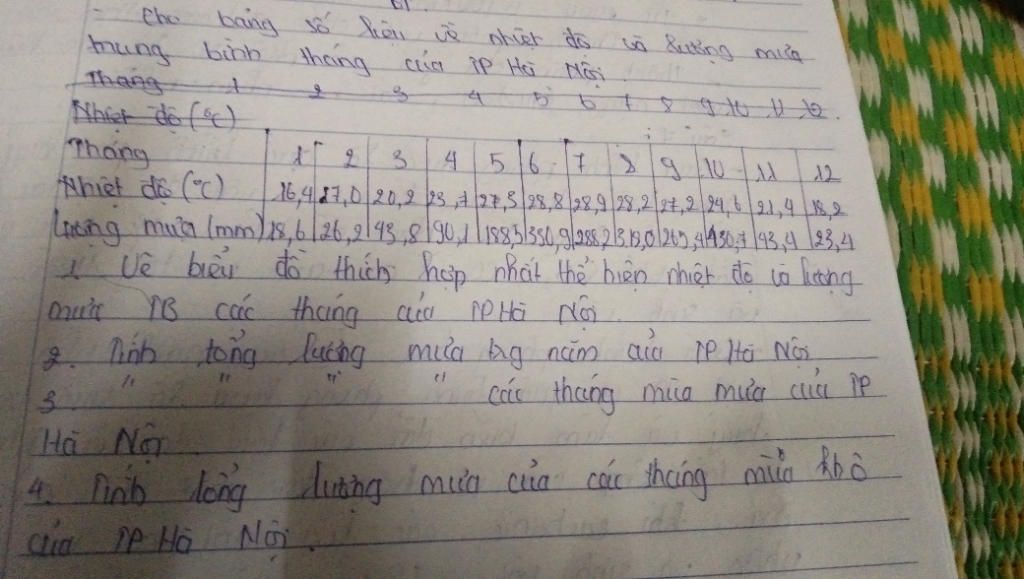 - Cho bảng số liệu về nhiệt độ và lượng mưa
trung bình tháng của TP Hà Nội.
Tháng 1 2 3 4 5 6 7 8 9 10 11 12
Nhiệt độ (°C)
Tháng 1 2 3 4 5 6 7 8 9 10 11 12
Nhiệt độ (°C) 16,4 17,0 20,2 23,7 27,3 28,8 28,9 28,2 27,2 24,6 21,4 18,2
Lượng mưa (mm) 18,6 26,2 43,8 90,1 188,5 330,9 288,2 318,0 265,4 130,7 43,4 23,4
1. Vẽ biểu đồ thích hợp nhất thể hiện nhiệt độ và lượng
mưa TB các tháng của TP Hà Nội.
2. Tính tổng lượng mưa năm của TP Hà Nội
3. " " " " các tháng mùa mưa của TP
Hà Nội.
4. Tính tổng lượng mưa của các tháng mùa khô
của TP Hà Nội.